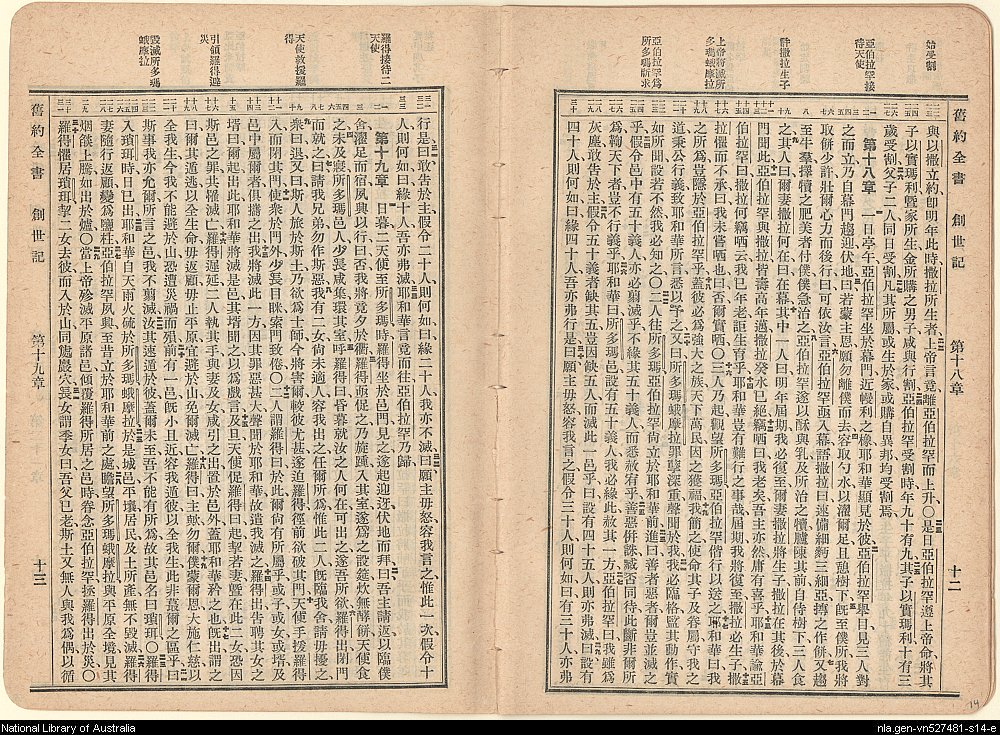 始受割
亞伯拉罕接
待天使
許撒拉生子
上帝將滅所
多瑪蛾摩拉
亞伯拉罕爲
所多瑪祈求
舊約全書 創世記 第十八章 十二
與以撒立約卽明年此時撒拉所生者上帝言竟離亞伯拉罕而上升〇是日亞伯拉罕遵上帝命將其
子以實瑪利曁家所生金所購之男子咸與行割亞伯拉罕受割時年九十有九其子以實瑪利十有三
歲受割父子二人同日受割凡其所屬或生於家或購自異邦均受割焉
第十八章 一日亭午亞伯拉罕坐於幕門近幔利之橡耶和華顯見於彼亞伯拉罕舉目見三人對
之而立乃自幕門趨迎伏地曰若蒙主恩願勿離僕而去容取勺水以濯爾足且憩樹下旣至僕所我將
取餅少許壯爾心力而後行曰可依汝言亞伯拉罕亟入幕語撒拉曰速備細麪三細亞摶之作餅又趨
至牛羣擇犢之肥美者付僕僕急治之亞伯拉罕遂以酥與乳及所治之犢臚陳其前自侍樹下三人食
之其人曰爾妻撒拉何在曰在幕其中一人曰明年屆期我必復至爾妻撒拉將生子撒拉在其後於幕
門聞此亞伯拉罕與撒拉皆壽高年邁撒拉癸水已絕竊哂曰我老矣吾主亦然庸有喜乎耶和華諭亞
伯拉罕曰撒拉何竊哂云我已年老詎生育乎耶和華豈有難行之事哉屆期我將復至撒拉必生子撒
拉懼而不承曰我未嘗哂也曰否爾實哂〇三人乃起觀望所多瑪亞伯拉罕偕行以送之耶和華曰我
之所爲豈隱於亞伯拉罕乎蓋彼必爲強大之族天下萬民因之獲福我簡之使命其子及眷屬守我之
道秉公行義致耶和華所言悉以予之又曰所多瑪蛾摩拉罪孽深重聲聞於我我必臨格監其動作實
如所聞設若不然我必知之〇二人往所多瑪亞伯拉罕尙立於耶和華前進曰善者惡者爾豈並滅之
乎假令邑中有五十義人亦必翦滅乎不緣其五十義人而悉赦宥乎善惡併誅臧否同待此斷非爾所
爲鞫天下者豈不行義乎耶和華曰我於所多瑪邑設有五十義人我必緣此赦其一方亞伯拉罕曰我雖爲
灰塵敢告於主假令五十義者缺其五豈因缺五人而滅此一邑乎曰設有四十五人則亦弗滅曰設有
四十人則何如曰緣四十人吾亦弗行是曰願主毋怒容我言之假令三十人則何如曰有三十人亦弗
羅得接待二
天使
天使救援羅
得
引領羅得避
災
毀滅所多瑪
蛾摩拉
行是曰敢告於主假令二十人則何如曰緣二十人我亦不滅曰願主毋怒容我言之惟此一次假令十
人則何如曰緣十人吾亦弗滅耶和華言竟而往亞伯拉罕乃歸
第十九章 日暮二天使至所多瑪時羅得坐於邑門見之遂起迎迓伏地而拜曰吾主請返以臨僕
舍濯足而宿夙興以行曰否我將竟夕於衢羅得亟促之乃旋踵入其室遂爲之設筵炊無酵餅天使食
之未及寢所多瑪邑人少長咸集環其室呼羅得曰昏暮就汝之人何在可出之遂吾所欲羅得出閉門
而就之曰請我兄弟勿作斯惡我有二女尙未適人容我出之任爾所爲惟此二人旣臨我舍請毋擾之
衆曰退又曰斯人旅於斯土乃欲爲士師今將害爾較彼尤甚遂迫羅得徑前欲破其門天使手援羅得
入而閉其門使衆於門外少長目眯索門致倦〇二人謂羅得曰於此有所屬乎或子或女或壻及
邑中屬爾者俱攜之出我將滅此一方因其罪惡甚大聲聞於耶和華故遣我滅之羅得出告聘其女之
壻曰爾起出此耶和華將滅是邑其壻聞之以爲戲言及旦天使促羅得曰起挈若妻曁在此二女恐因
斯邑之罪共罹滅亡羅得遲延二人執其手與妻及女咸引之出置於邑外蓋耶和華矜之也旣出謂之
曰爾其遁逃以全生命毋返顧毋止平原宜避於山免爾滅亡羅得曰主歟勿爾僕蒙爾恩大施仁慈以
全我生今我不能避於山恐遭災禍而殞前有一邑旣小且近容我遁彼以全我生此非蕞爾之區乎曰
斯事我亦允爾所言之邑我不翦滅汝其速遁於彼蓋爾未至吾不能有所爲故其邑名曰瑣珥〇羅得
入瑣珥時日已出耶和華自天雨火硫於所多瑪蛾摩拉於是城邑平壤居民及土所產無不毀滅羅得
妻隨行返顧變爲鹽柱亞伯拉罕夙興至昔立於耶和華前之處瞻望所多瑪蛾摩拉與平原全境見其
烟燄上騰如出於爐〇當上帝殄滅平原諸邑傾覆羅得所居之邑時眷念亞伯拉罕拯羅得出於災〇
羅得懼居瑣珥挈二女去彼而入於山同處巖穴長女謂季女曰吾父已老斯土又無人與我爲偶以循
舊約全書 創世記 第十九章 十三
14
National Library of Australia
nla.gen-vn527481-s14-e